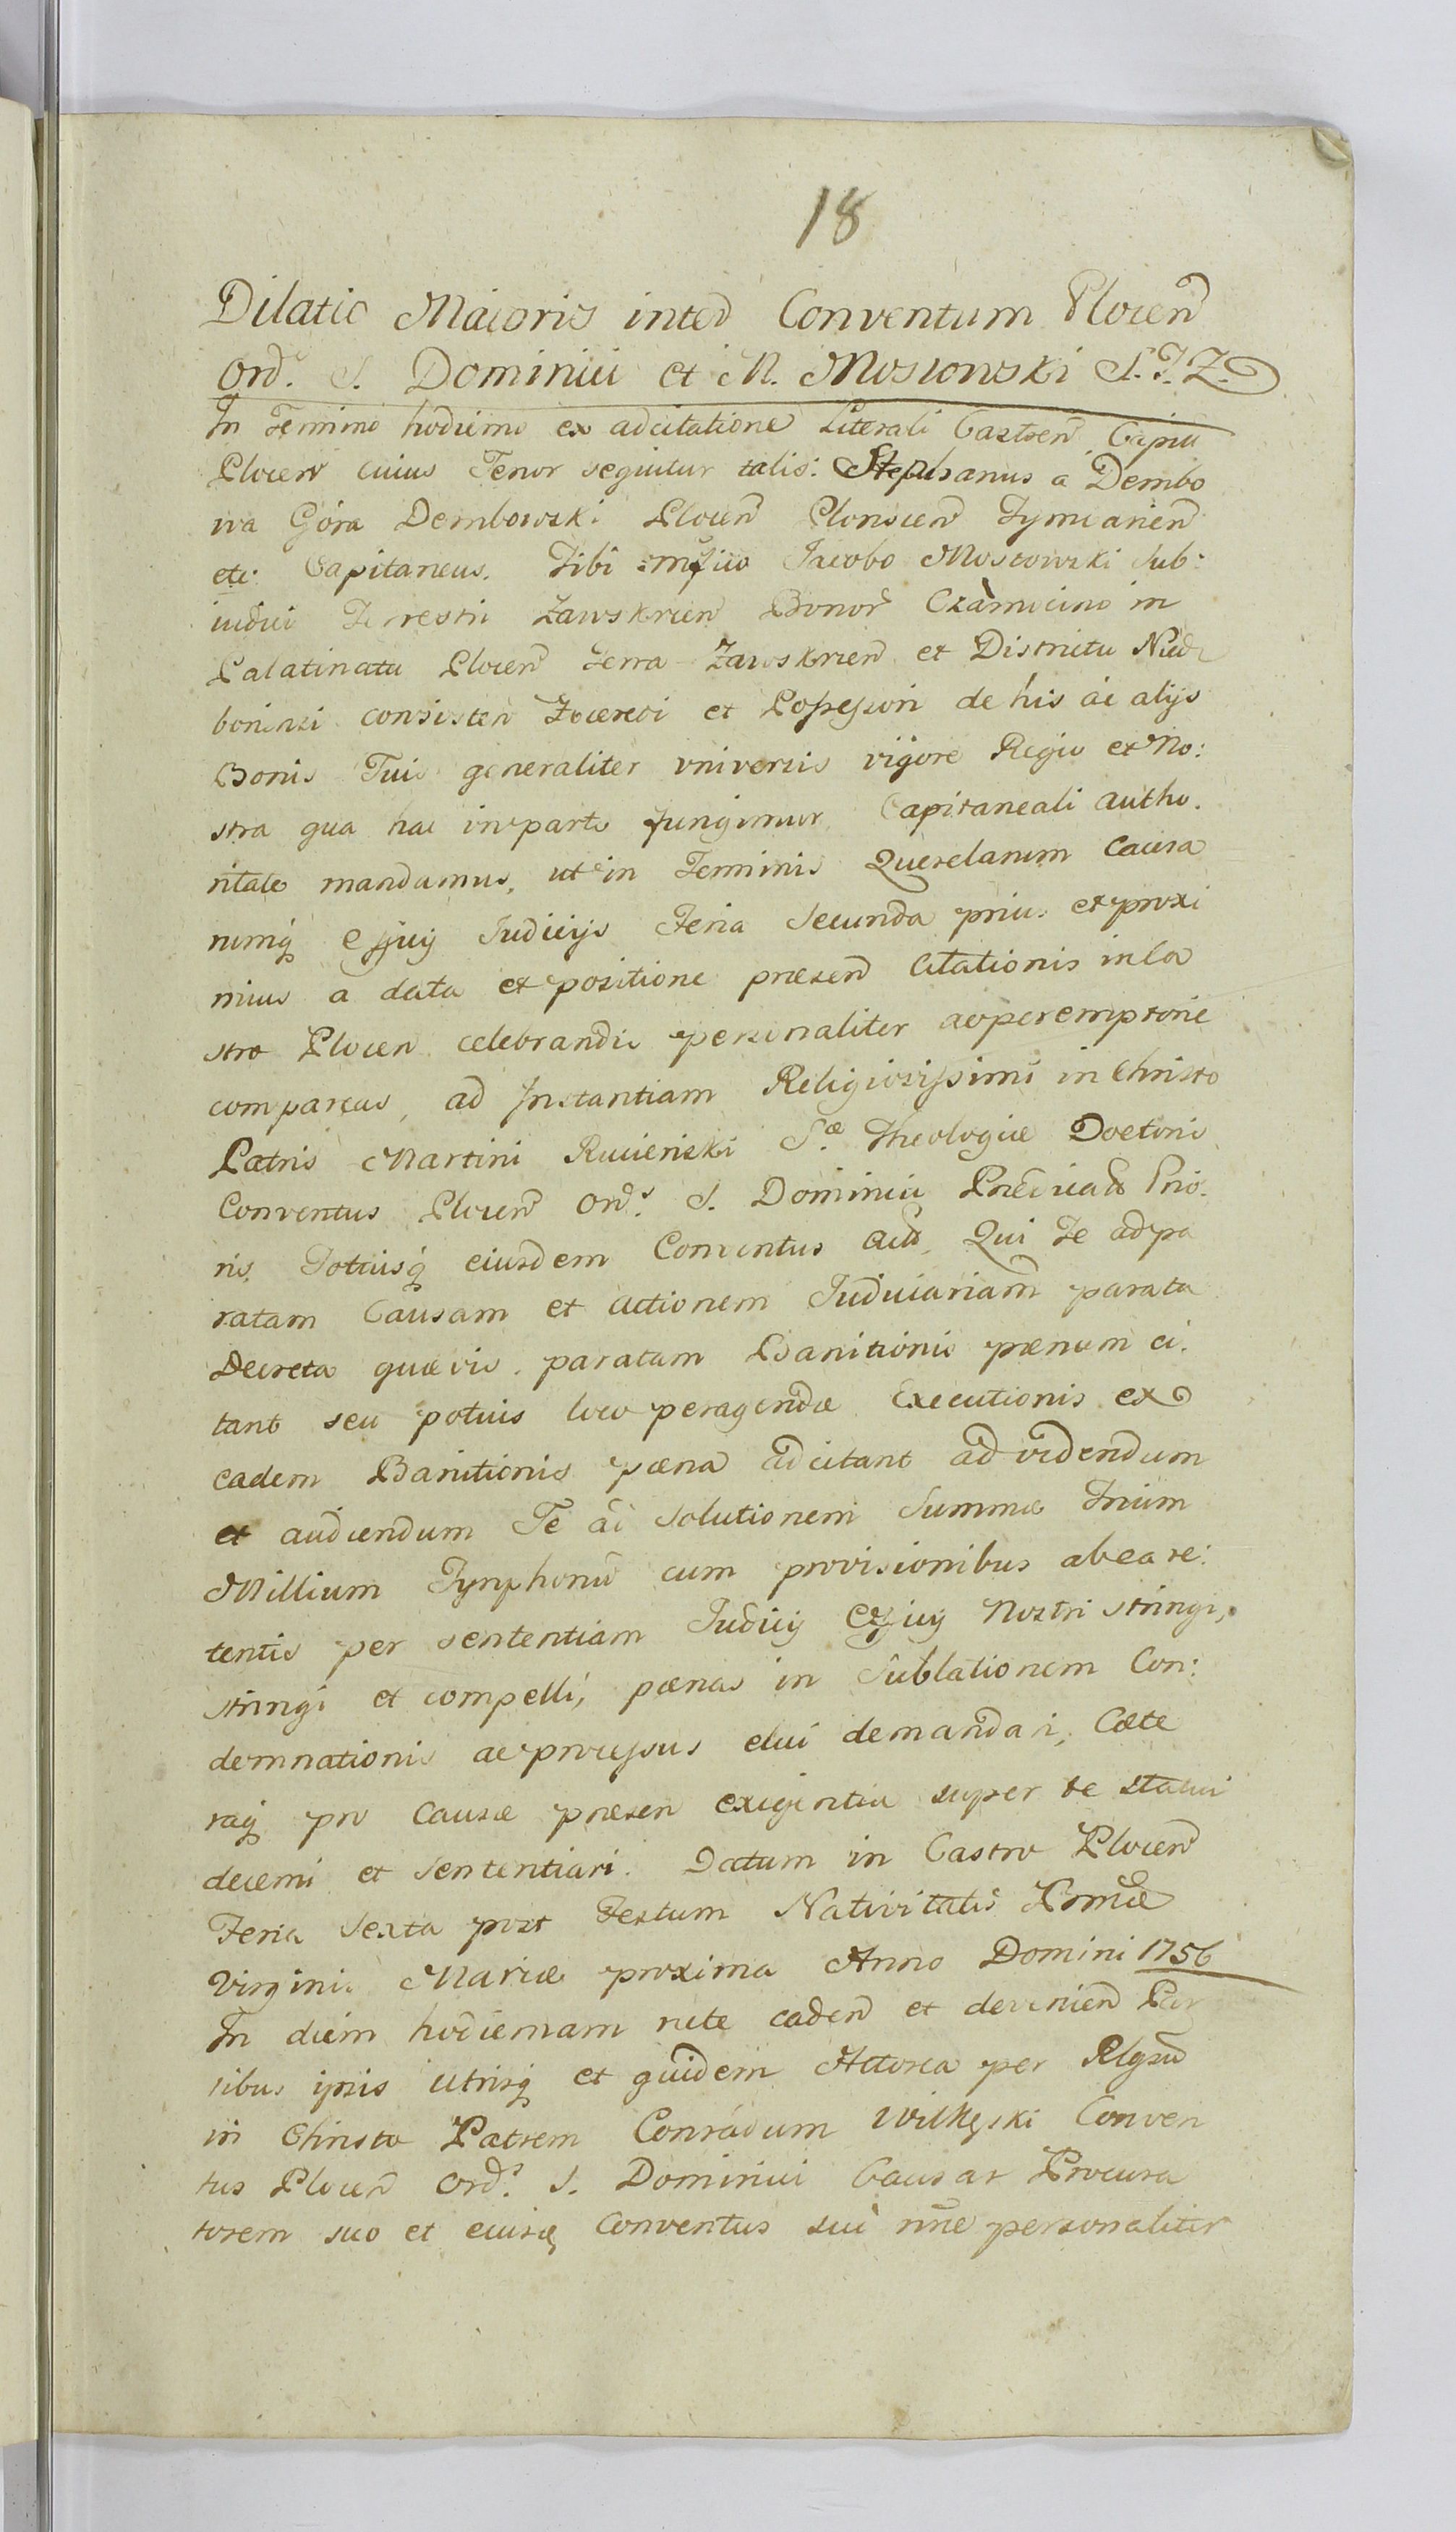 18
Dilatio Maioris inter Conventum Plocen
Ord. S. Dominici et M. Mostowski S.T.Z.
In Termino hodierno ex adcitatione Literali Castren Capitu
Plocen cuius Tenor sequitur talis: Stephanus a Dembo
wa Góra Dembowski Plocen Plonscen Tymcanien
etc. Capitaneus. Tibi Mgfico Jacobo Mostowski Sub:
iudici Terrestri Zawskrien Bonor Czarnocino in
Palatinatu Plocen Terra Zawskrien et Districtu Niedz
boriensi consisten Hæredi et Possessori de his ac alijs
Bonis Tuis generaliter universis vigore Regio et No:
stra qua hac in parte fungimur Capitaneali autho.
ritate mandamus, ut in Terminis Querelarum Causa
rumq Officij Judicijs Feria Secunda prius et proxi
mius a data et positione præsen Citationis in Ca
stro Plocen celebrandis personaliter ac peremptorie
compareas, ad Instantiam Religiosissimi in Christo
Patris Martini Rucienski S.æ Theologiæ Doctoris
Conventus Plocen Ord.s S. Dominici Prædicato Prio.
ris, Totiusq eiusdem Conventus Act. Qui Te ad pa
ratam Causam et actionem Judiciariam parata
Decreta quævis, paratam Banitionis pænam ci.
tant seu potius loco peragendæ Executionis ex
eadem Banitionis pæna adcitant ad videndum
et audiendum Te ad solutionem Summæ Trium
Millium Tynphonu cum provisionibus ab ea re:
tentis per sententiam Judicij Officij Nostri stringi,
stringi et compelli, pænas in Sublationem Con:
demnationis ac processus elui demandari, Cæte
raq pro Causæ præsen exigentia super te statui
decerni et Sententiari. Datum in Castro Plocen
Feria Sexta post Festum Nativitatis Bmæ
Virginis Mariæ proxima Anno Domini 1756
In diem hodiernam rite caden et devenien Par
tibus ipsis utrisq et quidem Actorea per Rlgsu
in Christo Patrem Conradum Wilkęski Conven
tus Plocen Ord.s S. Dominici Causar Procura
torem suo et eiusq Conventus sui nne personaliter